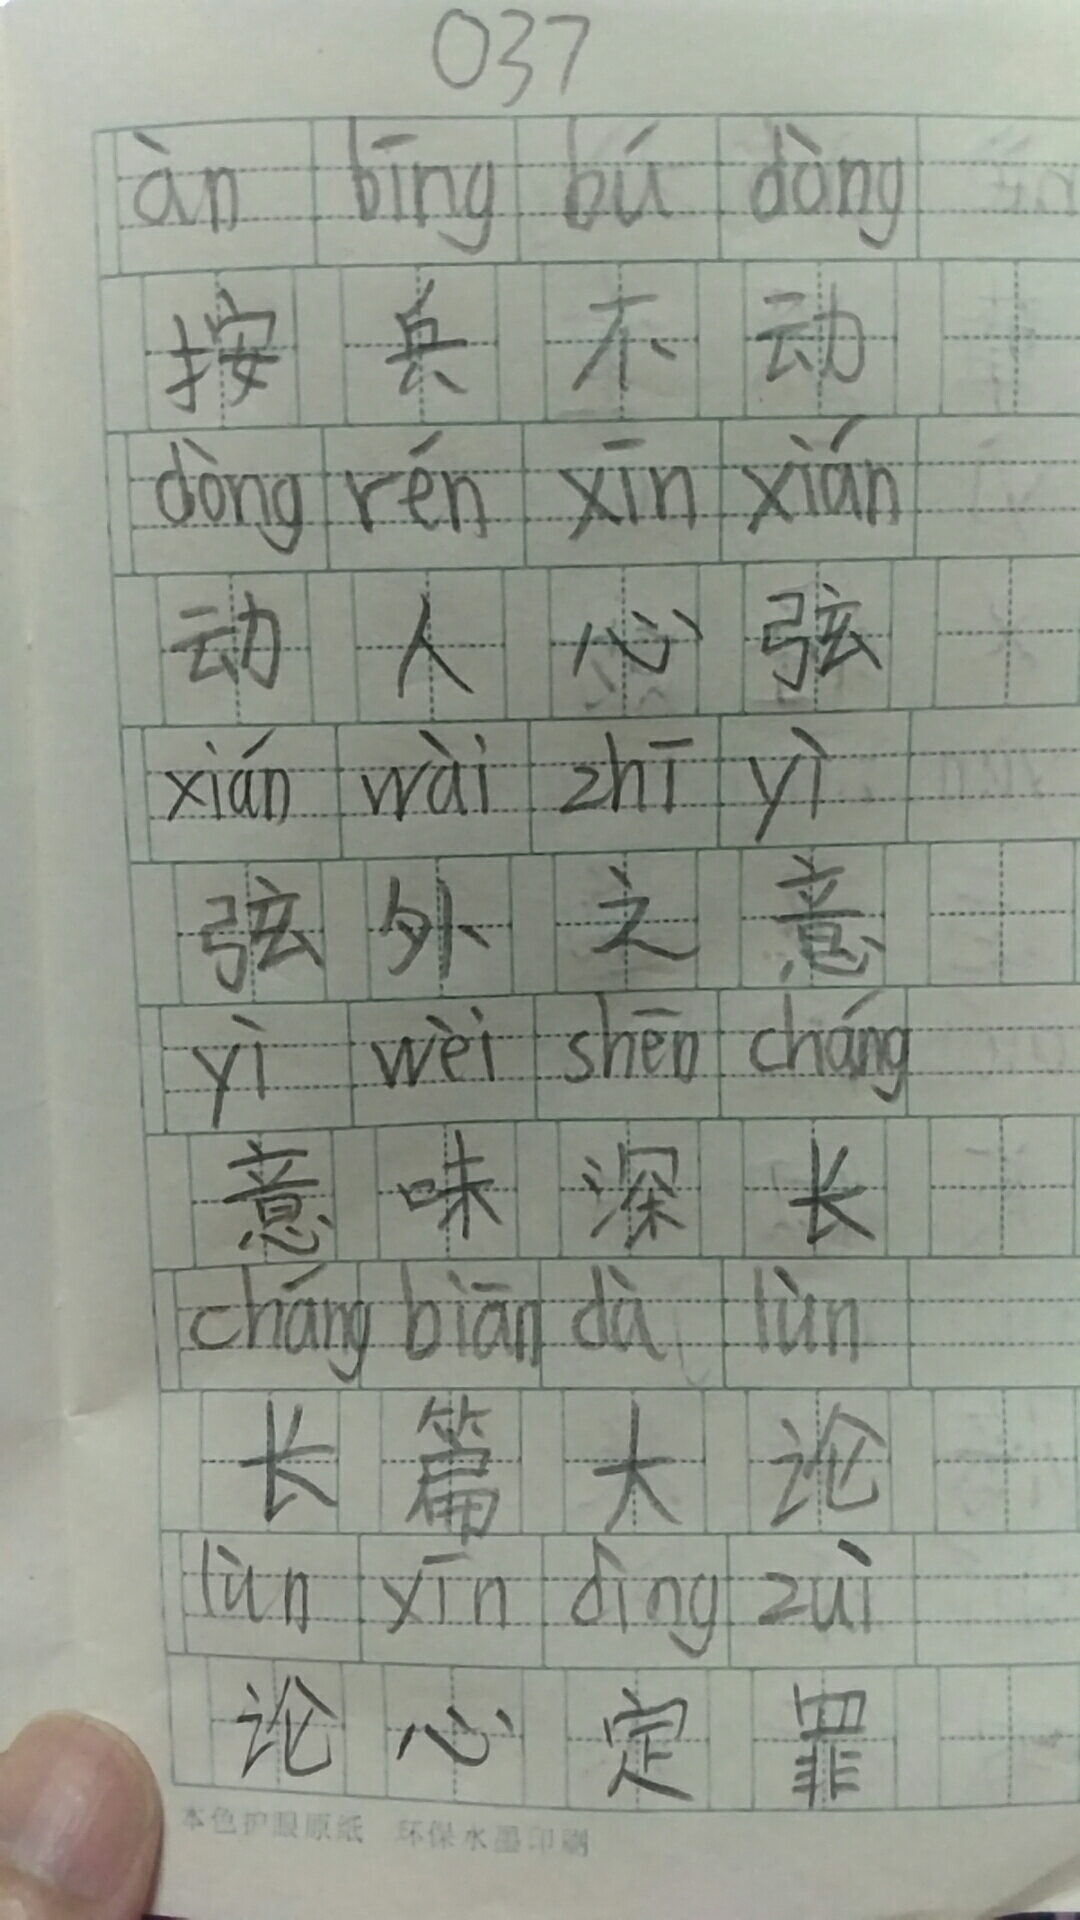 037
àn bīng bú dòng
按兵不动
dòng rén xīn xián
动人心弦
xián wài zhī yì
弦外之意
yì wèi shēn cháng
意味深长
cháng biān dà lùn
长篇大论
lùn xīn dìng zuì
论心定罪
本色护眼原纸 环保水墨印刷